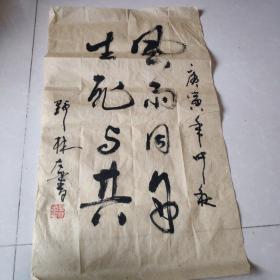 庚寅年仲秋
風雨同舟
生死与共
野林